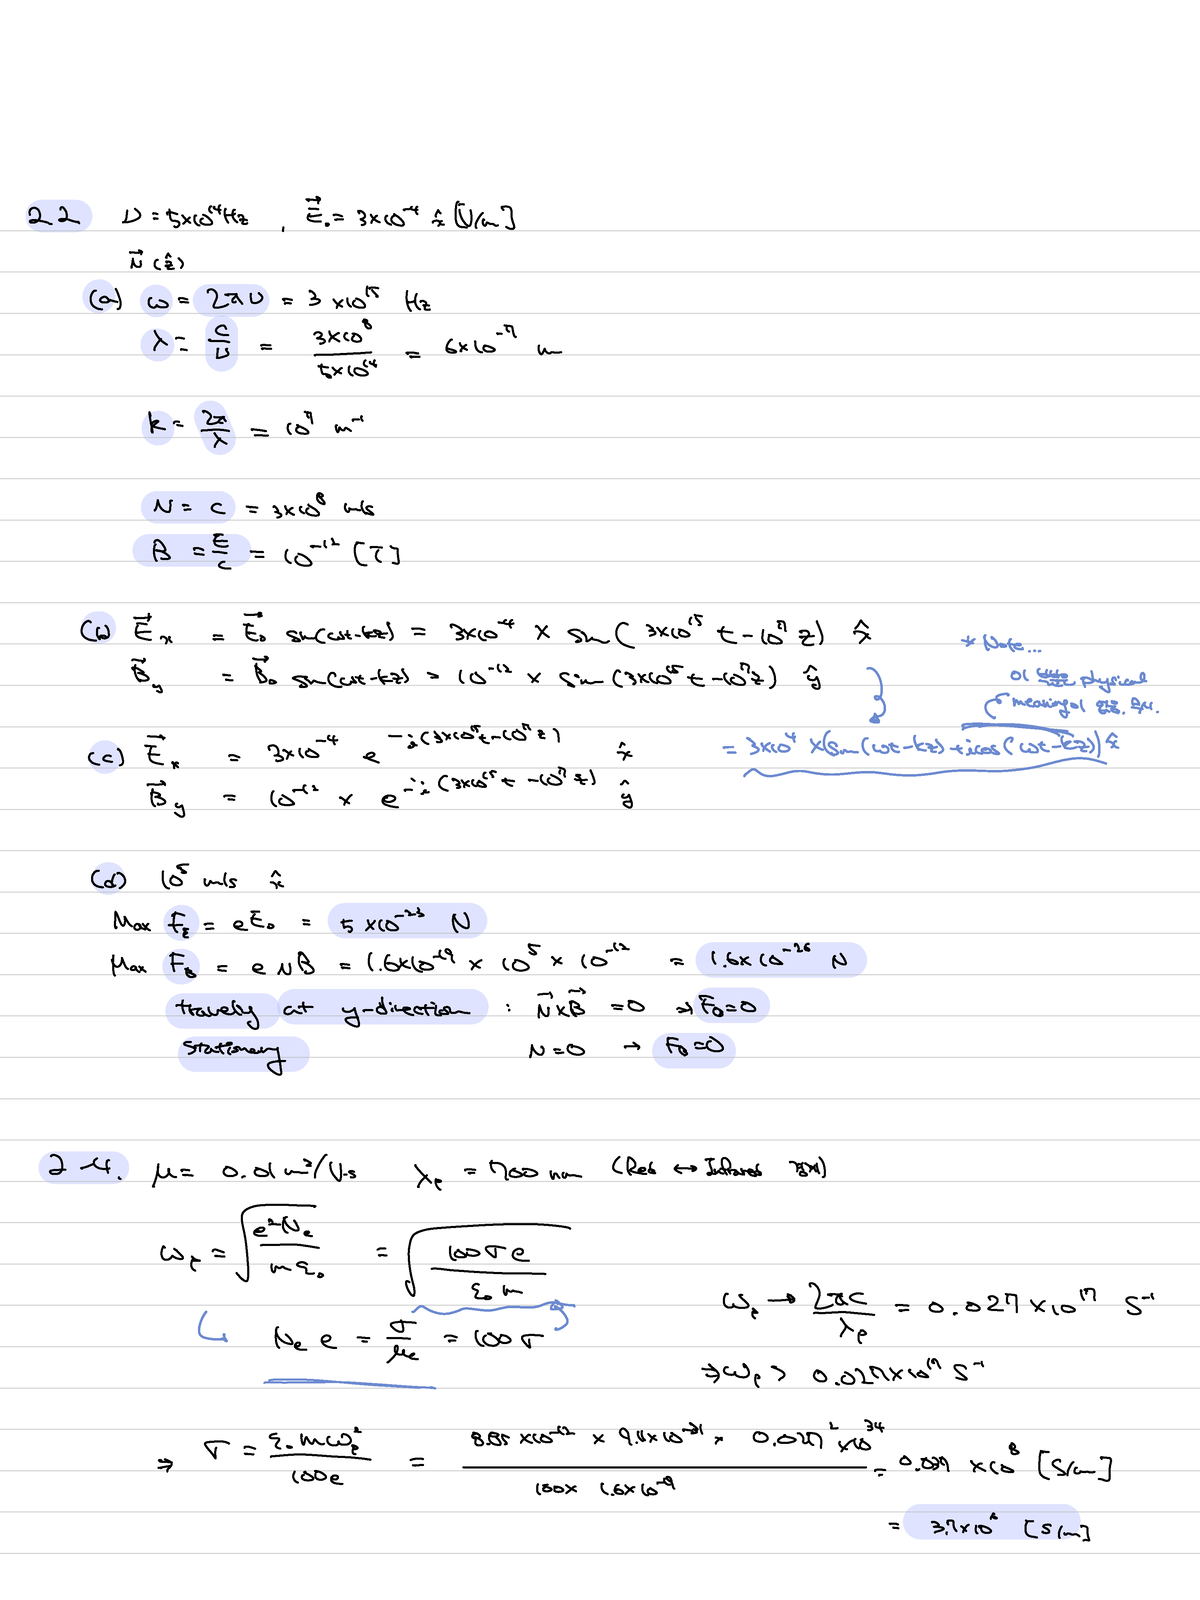 2.2 ν = 5×10¹⁴Hz , E⃗₀ = 3×10⁻⁴ x̂ [V/m]
v⃗ (ẑ)
(a) ω = 2πν = 3 ×10¹⁵ Hz
λ = c/ν = 3×10⁸ / 5×10¹⁴ = 6×10⁻⁷ m
k = 2π/λ = 10⁷ m⁻¹
v = c = 3×10⁸ m/s
B = E/c = 10⁻¹² [T]
(b) E⃗x = E⃗₀ sin(ωt-kz) = 3×10⁻⁴ × sin( 3×10¹⁵ t - 10⁷ z) x̂
B⃗y = B⃗₀ sin(ωt-kz) = 10⁻¹² × sin(3×10¹⁵ t - 10⁷ z) ŷ
* Note...
이 physical
meaning이 없음.
(c) E⃗x = 3×10⁻⁴ e^-i(3×10¹⁵t-10⁷z) x̂
= 3×10⁴ ×(sin(ωt-kz)+icos(ωt-kz)) x̂
B⃗y = 10⁻¹² × e^-i(3×10¹⁵t -10⁷z) ŷ
(d) 10⁵ m/s x̂
Max F_E = eE₀ = 5 ×10⁻²³ N
Max F_B = e v B = 1.6×10⁻¹⁹ × 10⁵ × 10⁻¹² = 1.6×10⁻²⁶ N
traveling at y-direction : v⃗×B⃗ = 0 → F_B=0
Stationary v=0 → F_B=0
2.4. μ = 0.01 m²/V·s λp = 700 nm (Red ↔ Infrared 경계)
ωp = √(e²Ne / mε₀) = √(100σe / ε₀m)
ωp → 2πc/λp = 0.027 ×10¹⁷ s⁻¹
Ne e = σ/μe = 100σ
⇒ ωp > 0.027×10¹⁷ s⁻¹
⇒ σ = ε₀mωp² / 100e = 8.85 ×10⁻¹² × 9.1×10⁻³¹ × 0.027² ×10³⁴ / 100× 1.6×10⁻¹⁹ = 0.037 ×10⁸ [S/m]
= 3.7×10⁶ [S/m]